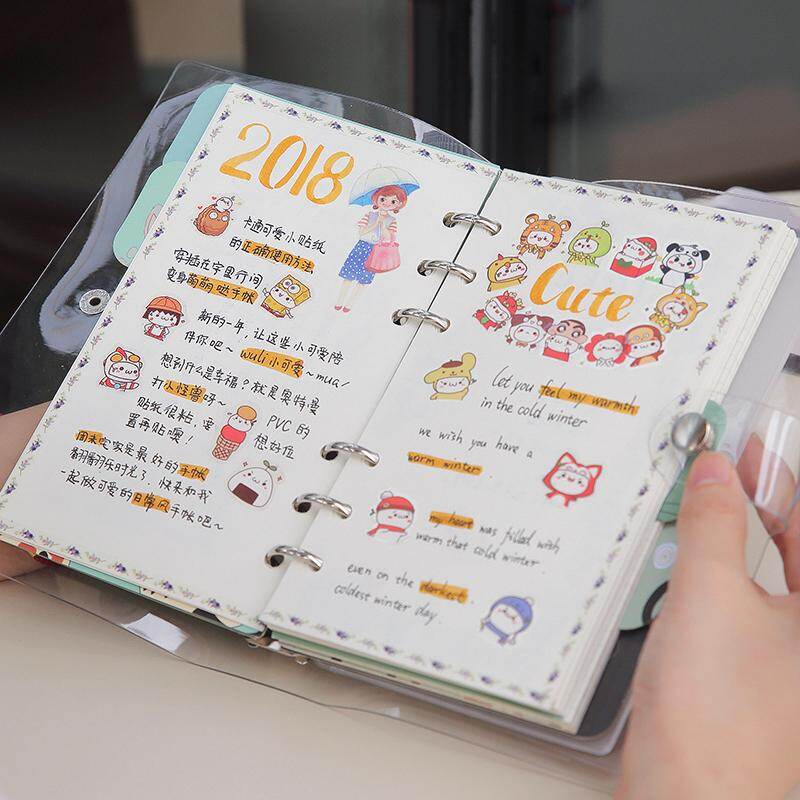 2018
卡通可爱小贴纸
的正确使用方法
穿插在字里行间
变身萌萌哒手帐
新的一年,让这些小可爱陪
伴你吧~wuli小可爱~mua/
想到什么是幸福?就是奥特曼
打小怪兽呀~ PVC的
贴纸很粘,要想好位
置再贴噢!
周末宅家是最好的手帐
翻翻翻乐时光了,快来和我
一起做可爱的日常风手帐吧~
Cute
let you feel my warmth
in the cold winter
we wish you have a
warm winter
my heart was filled with
warm that cold winter.
even on the darkest.
coldest winter day.